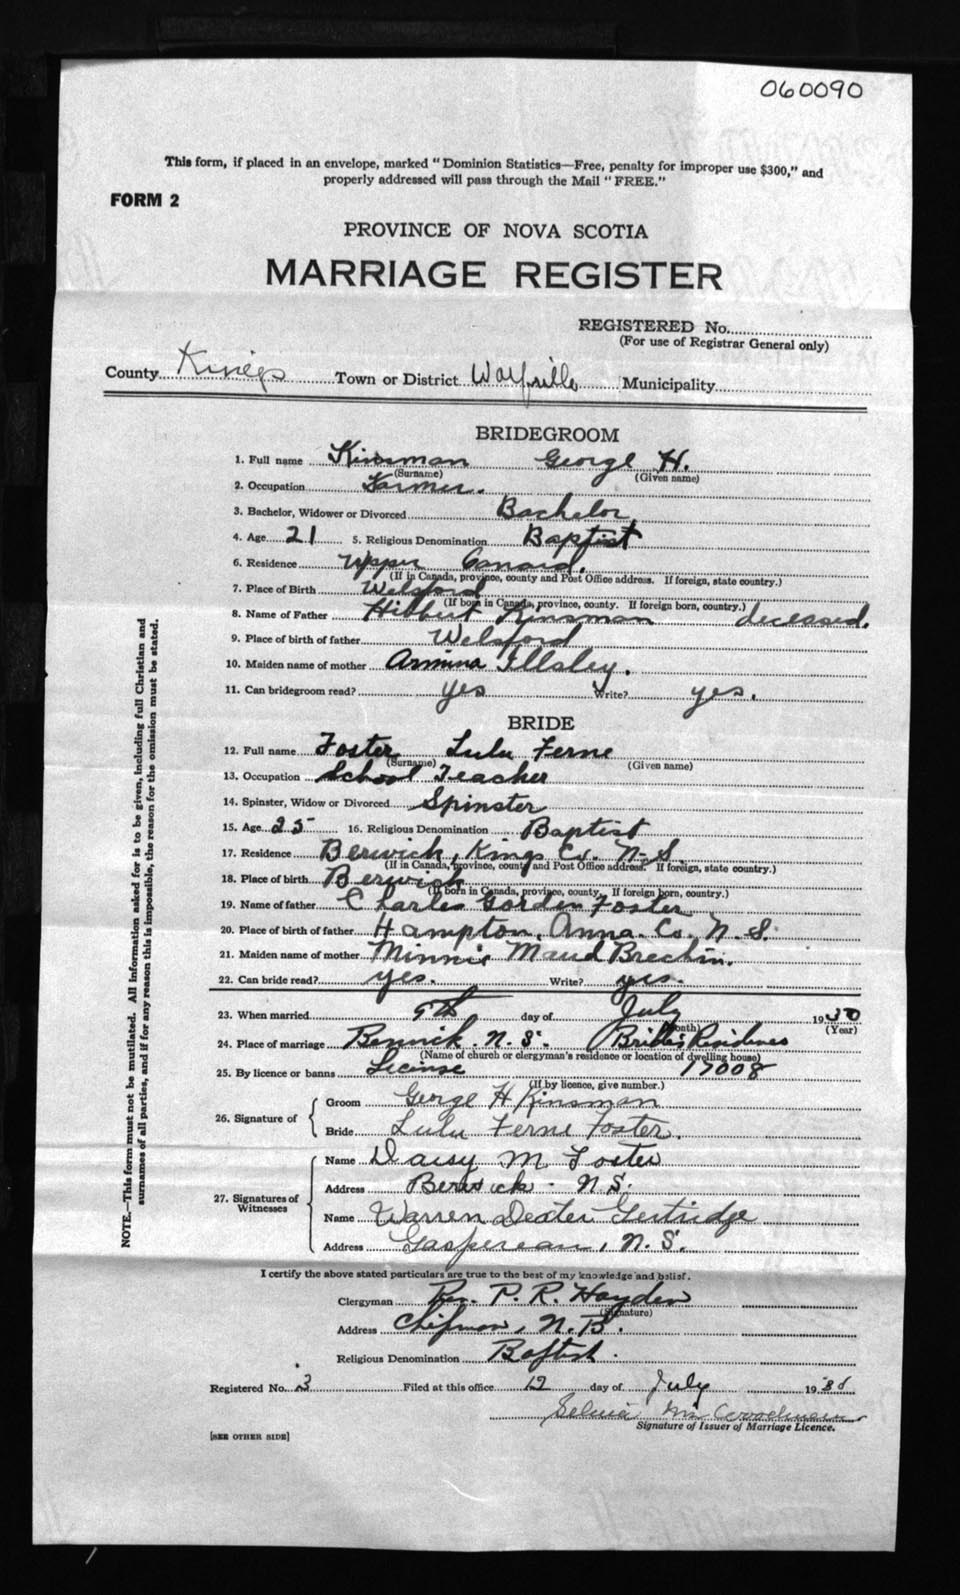 060090
This form, if placed in an envelope, marked "Dominion Statistics—Free, penalty for improper use $300," and
properly addressed will pass through the Mail "FREE."
FORM 2
PROVINCE OF NOVA SCOTIA
MARRIAGE REGISTER
REGISTERED No.
(For use of Registrar General only)
County Kings Town or District Wolfville Municipality
BRIDEGROOM
1. Full name Kinsman George H.
(Surname) (Given name)
2. Occupation Farmer.
3. Bachelor, Widower or Divorced Bachelor
4. Age 21 5. Religious Denomination Baptist
6. Residence Upper Canard.
(If in Canada, province, county and Post Office address. If foreign, state country.)
7. Place of Birth Welsford
(If born in Canada, province, county. If foreign born, country.)
8. Name of Father Hibbert Kinsman deceased.
9. Place of birth of father Welsford
10. Maiden name of mother Armina Illsley.
11. Can bridegroom read? yes Write? yes.
BRIDE
12. Full name Foster Lulu Ferne
(Surname) (Given name)
13. Occupation School Teacher
14. Spinster, Widow or Divorced Spinster
15. Age 25 16. Religious Denomination Baptist
17. Residence Berwick, Kings Co. N.S.
(If in Canada, province, county and Post Office address. If foreign, state country.)
18. Place of birth Berwick
(If born in Canada, province, county. If foreign born, country.)
19. Name of father Charles Gorden Foster
20. Place of birth of father Hampton, Anna. Co. N.S.
21. Maiden name of mother Minnie Maud Brechin.
22. Can bride read? yes. Write? yes.
23. When married 9th day of July 1930
(Month) (Year)
24. Place of marriage Berwick. N.S. Bride's Residence
(Name of church or clergyman's residence or location of dwelling house)
25. By licence or banns License 17008
(If by licence, give number.)
26. Signature of
Groom George H Kinsman
Bride Lulu Ferne Foster.
27. Signatures of Witnesses
Name Daisy M Foster
Address Berwick - N.S.
Name Warren Dexter Gertridge
Address Gaspereau, N.S.
I certify the above stated particulars are true to the best of my knowledge and belief.
Clergyman Rev. P. R. Hayden
(Signature)
Address Chipman, N.B.
Religious Denomination Baptist.
Registered No. 3 Filed at this office 12 day of July 1930
Woodman
Signature of Issuer of Marriage Licence.
[SEE OTHER SIDE]
NOTE.—This form must not be mutilated. All information asked for is to be given, including full Christian and
surnames of all parties, and if for any reason this is impossible, the reason for the omission must be stated.